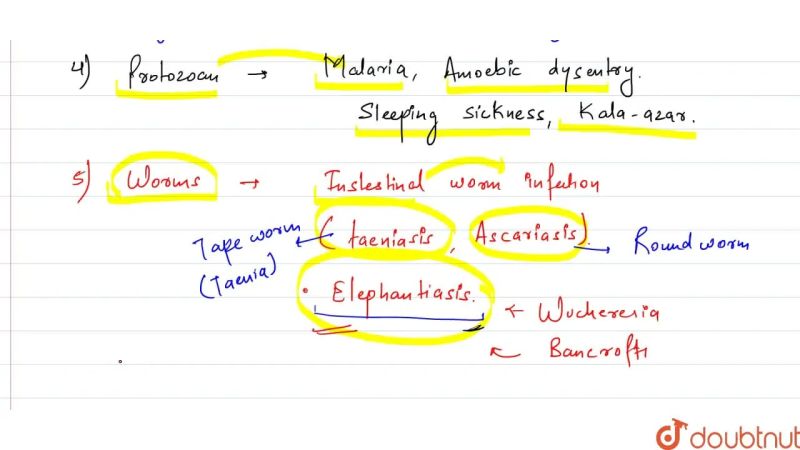 4) Protozoan → Malaria, Amoebic dysentry.
Sleeping sickness, Kala-azar.
5) Worms → Instestinal worm infection
Tape worm (taeniasis, Ascariasis). → Round worm
(Taenia)
• Elephantiasis. ← Wuchereria
← Bancrofti
doubtnut